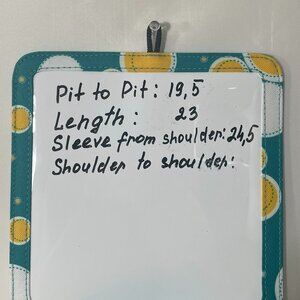 Pit to Pit: 19,5
Length: 23
Sleeve from shoulder: 24,5
Shoulder to shoulder: